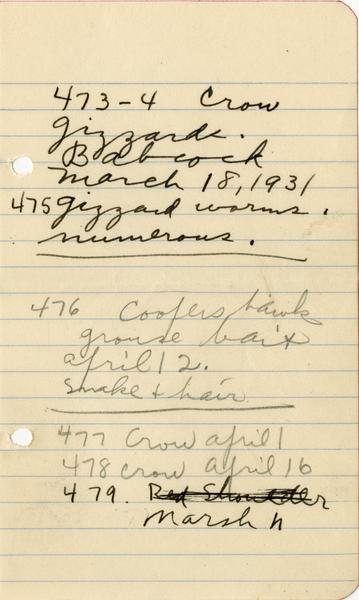 473-4 Crow
Gizzards.
Babcock
March 18, 1931
475 gizzard worms.
numerous.
476 Coopers hawk
grouse bait
april 12.
Snake + hair
477 Crow april 1
478 crow april 16
479. Red Shoulder
Marsh h